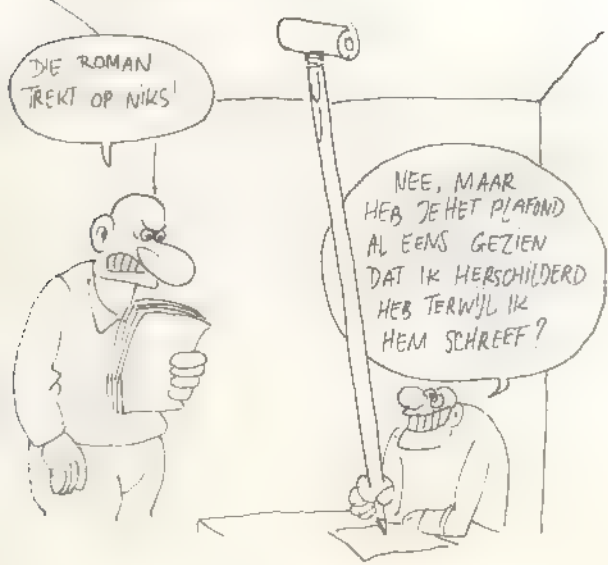 DIE ROMAN
TREKT OP NIKS!
NEE, MAAR
HEB JE HET PLAFOND
AL EENS GEZIEN
DAT IK HERSCHILDERD
HEB TERWIJL IK
HEM SCHREEF?